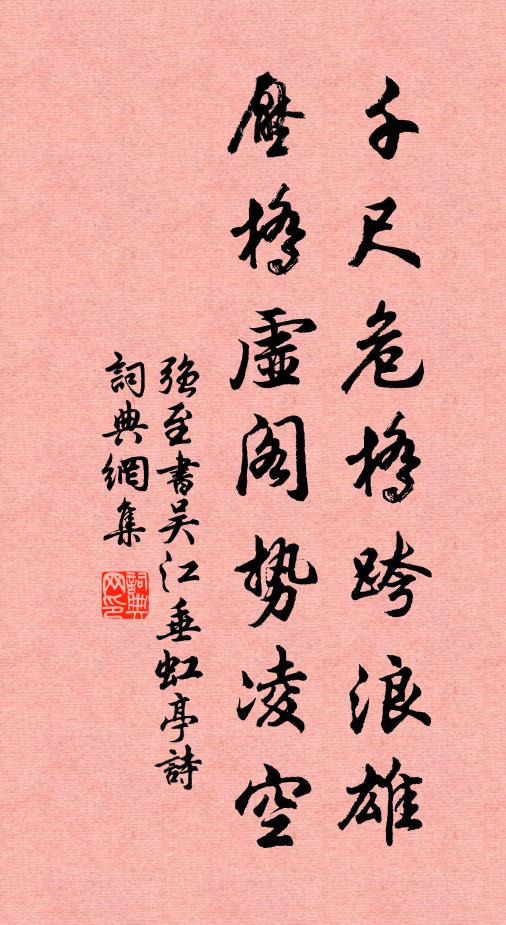 千尺危橋跨浪雄
壓橋虛阁势凌空
強至書吴江垂虹亭詩
詞典網集
詞典网印